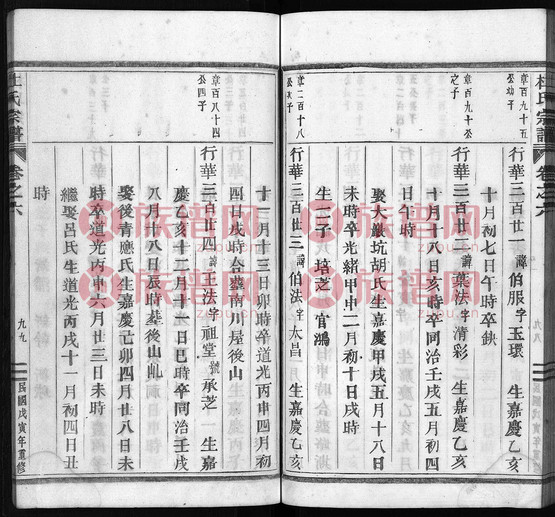 杜氏宗譜
卷之六
九八
章百九十五
公幼子
行華三百廿一諱伯服字玉環 生嘉慶乙亥
十月初七日午時卒缺
章百九十公
之子
行華三百廿二諱葉法字清彩 生嘉慶乙亥
十月十八日亥時卒同治壬戌五月初四
日午時
娶大嚴坑胡氏生嘉慶甲戌五月十八日
未時卒光緒甲申二月初十日戌時
生二子 培芝 官鴻
章二百十八
行華三百廿三諱伯法字太昌 生嘉慶乙亥
十二月十三日卯時卒道光丙申四月初
四日戌時合塟南川屋後山
章百八十四
公四子
行華三百廿四諱王法字祖堂號承芝 生嘉
慶乙亥十二月十二日巳時卒同治壬戌
八月廿八日辰時塟後山乢
娶後青應氏生嘉慶己卯四月廿八日未
時卒道光丙申八月廿三日未時
繼娶呂氏生道光丙戌十一月初四日丑
時
杜氏宗譜
卷之六
九九
民國戊寅年重修
族譜网